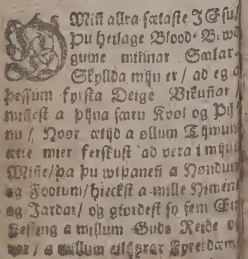 O Miñ allra sætaste JEsu,
Þu heilage Blood-Brwd
gume minnar Sælar
Skyllda mijn er / ad eg a
þessum fyrsta Deige Vikunar /
miñest a þijna saru Kvol og Pij
nu / Noor ætijd a ollum Tijmum
ætte mier ferskust ad vera i mijnu
Miñe / þa þu wtþaneñ a Hondum
og Footum / hieckst a mille Himens
og Jardar / og giordest so sem Eirn
a millum Guds Reide og
vor / a millum